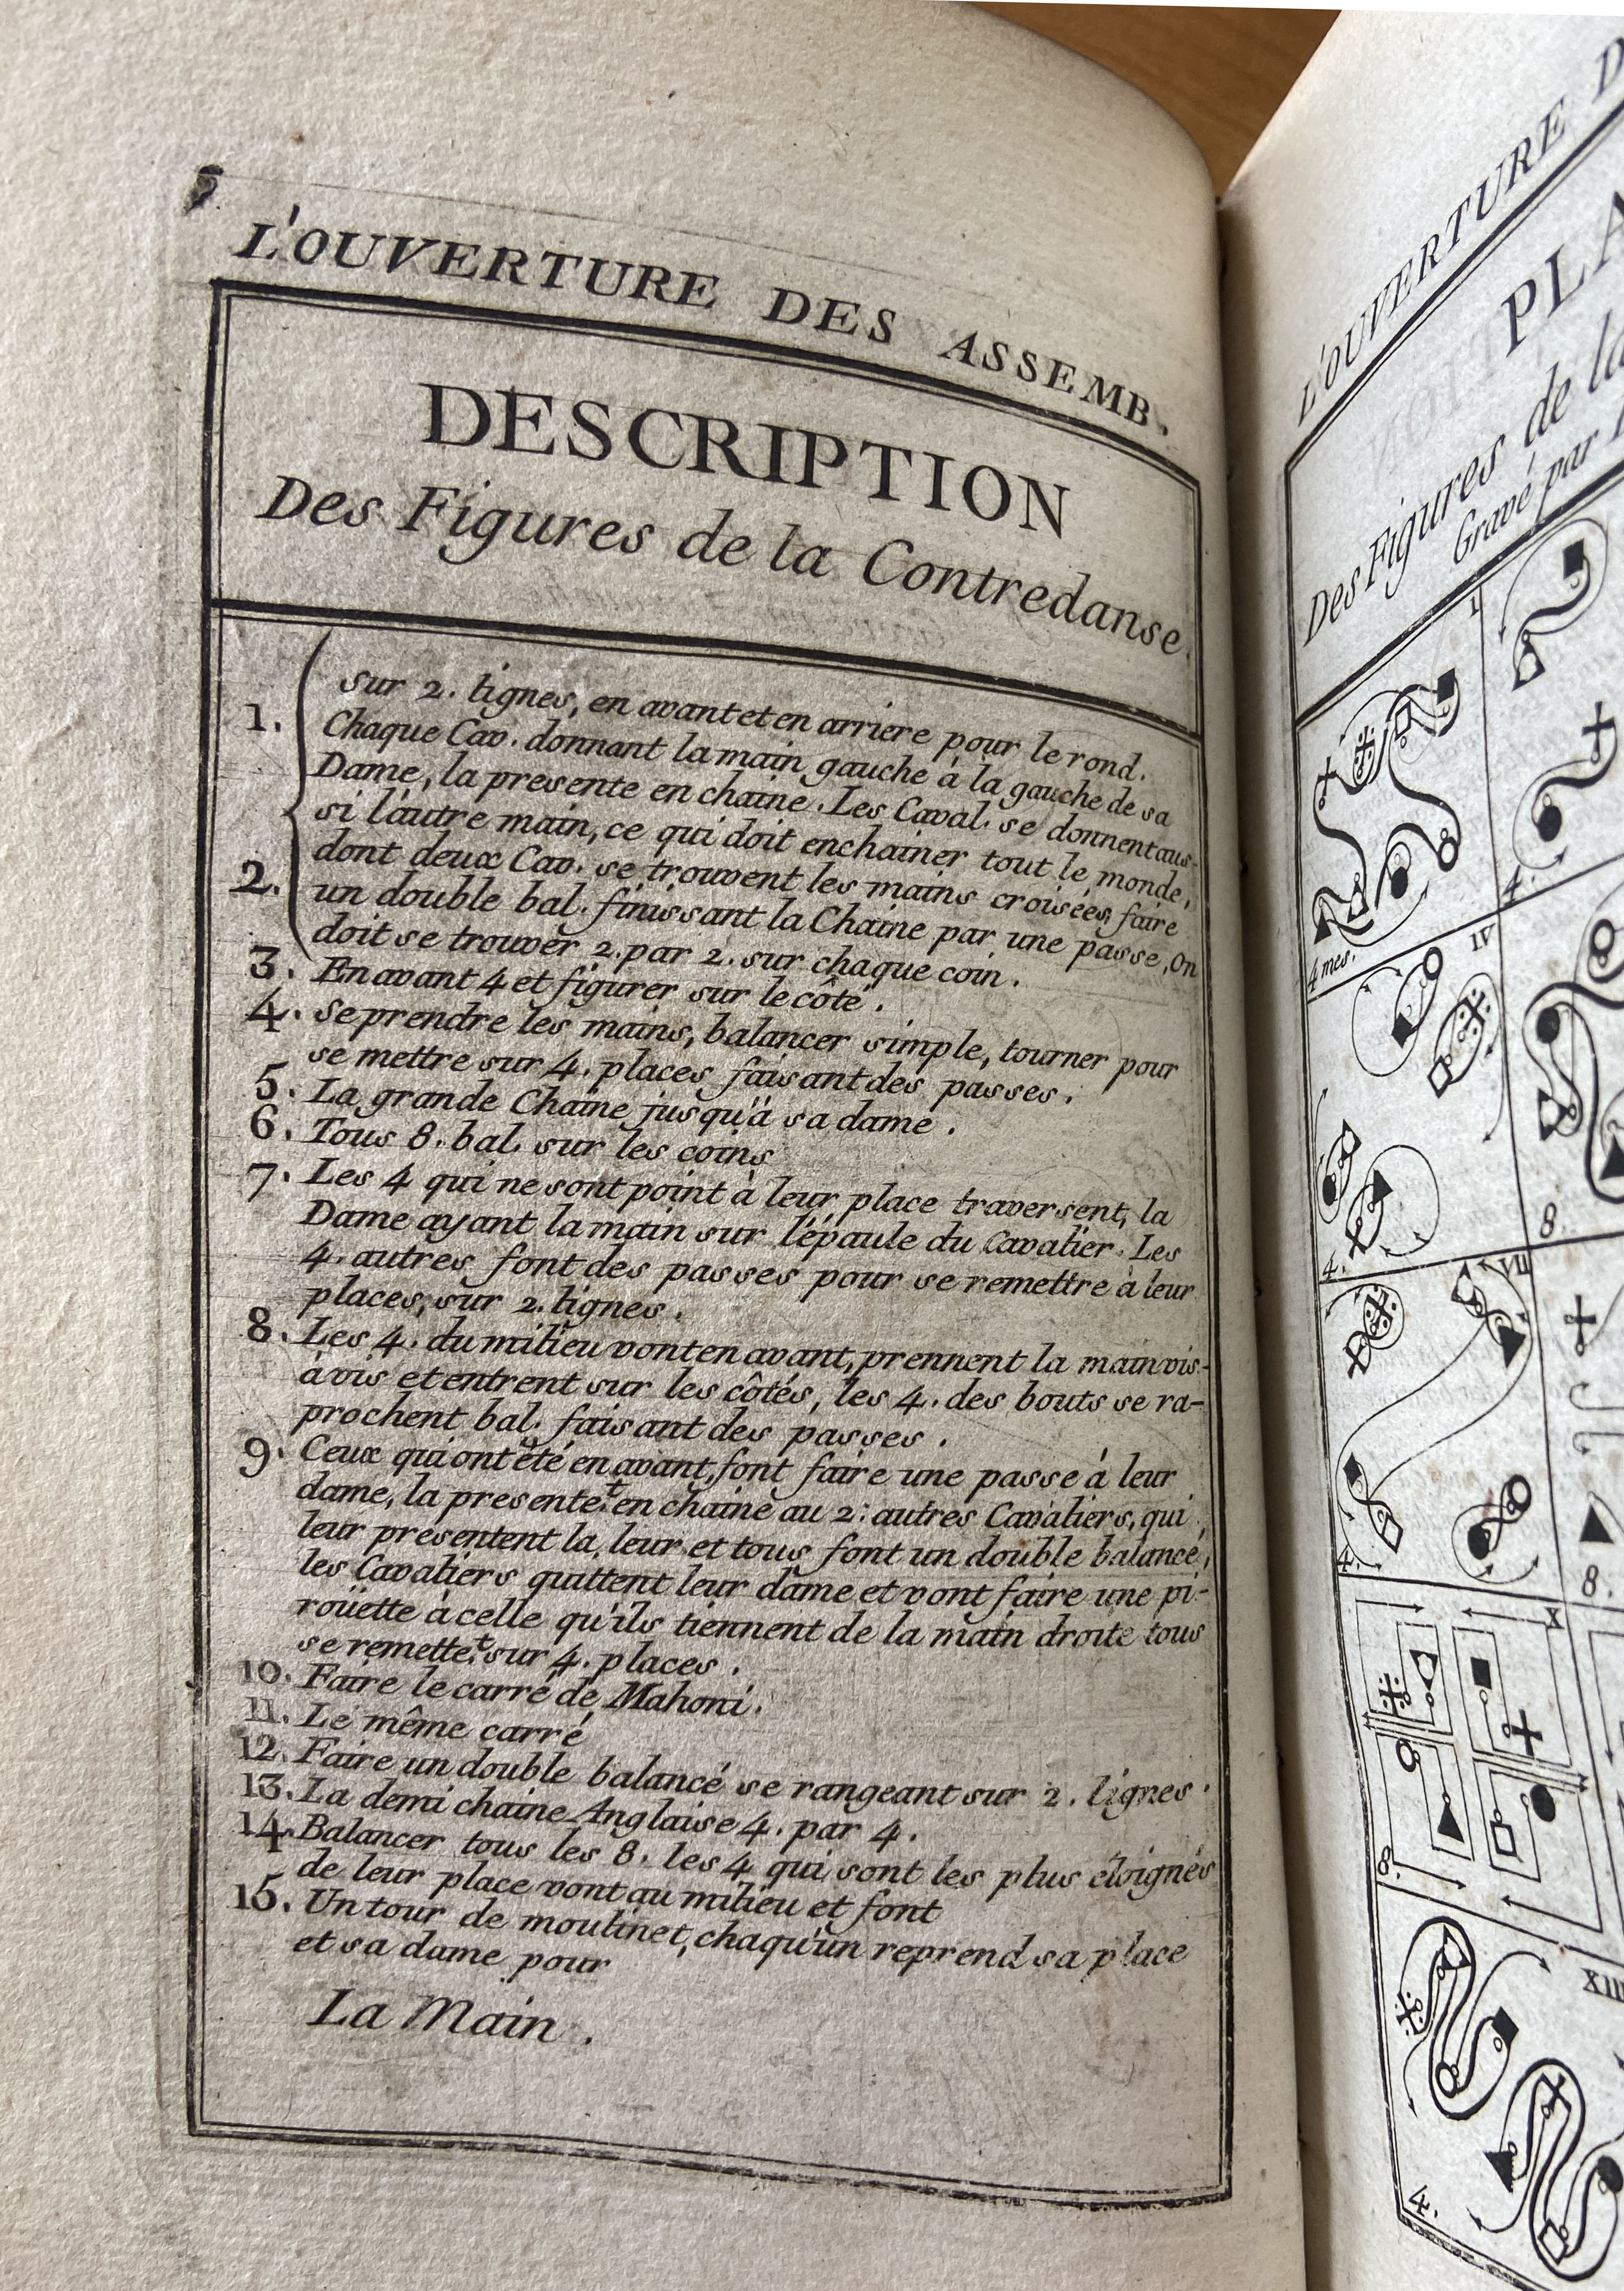 L'OUVERTURE DES ASSEMB.
DESCRIPTION
Des Figures de la Contredanse.
1. sur 2. lignes, en avant et en arriere pour le rond.
Chaque Cav. donnant la main gauche à la gauche de sa
Dame, la presente en chaine. Les Caval. se donnent aus-
si l'autre main, ce qui doit enchainer tout le monde,
dont deux Cav. se trouvent les mains croisées, faire
2. un double bal. finissant la Chaine par une passe, On
doit se trouver 2. par 2. sur chaque coin.
3. En avant 4 et figurer sur le côté.
4. se prendre les mains, balancer simple, tourner pour
se mettre sur 4. places faisant des passes.
5. La grande Chaine jusqu'à sa dame.
6. Tous 8. bal. sur les coins
7. Les 4 qui ne sont point à leur place traversent, la
Dame ayant la main sur l'épaule du Cavalier. Les
4. autres font des passes pour se remettre à leur
places, sur 2. lignes.
8. Les 4. du milieu vont en avant, prennent la main vis-
à vis et entrent sur les côtés, les 4. des bouts se ra-
prochent bal. faisant des passes.
9. Ceux qui ont été en avant, font faire une passe à leur
dame, la presente.t en chaine au 2: autres Cavaliers, qui
leur présentent la leur et tous font un double balancé,
les Cavaliers quittent leur dame et vont faire une pi-
roüette à celle qu'ils tiennent de la main droite tous
se remette.t sur 4. places.
10. Faire le carré de Mahoni.
11. Le même carré
12. Faire un double balancé se rangeant sur 2. lignes.
13. La demi chaine Anglaise 4. par 4.
14. Balancer tous les 8. les 4 qui sont les plus éloignés
de leur place vont au milieu et font
15. Un tour de moulinet, chaqu'un reprend sa place
et sa dame pour
La Main.
L'OUVERTURE D
PLA
Des Figures de la
Gravé par
I
4 mes.
4.
IV
8.
4.
VII
8.
4.
X
8.
XIII
4.